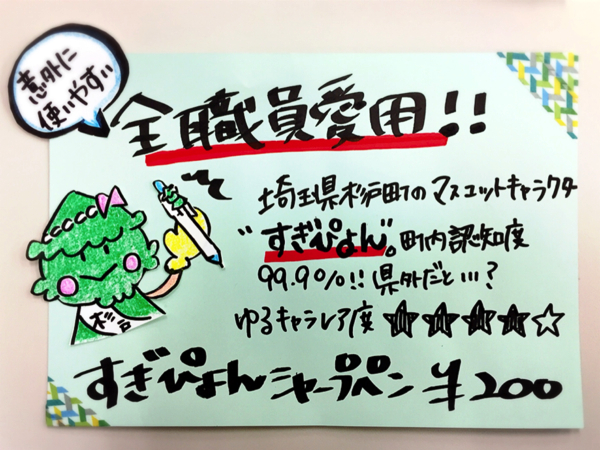 意外に
使いやすい
全職員愛用!!
埼玉県杉戸町のマスコットキャラクター
"すぎぴょん"。町内認知度
99.9%!! 県外だと…?
ゆるキャラレア度 ★★★★☆
杉戸
すぎぴょんシャープペン ¥200